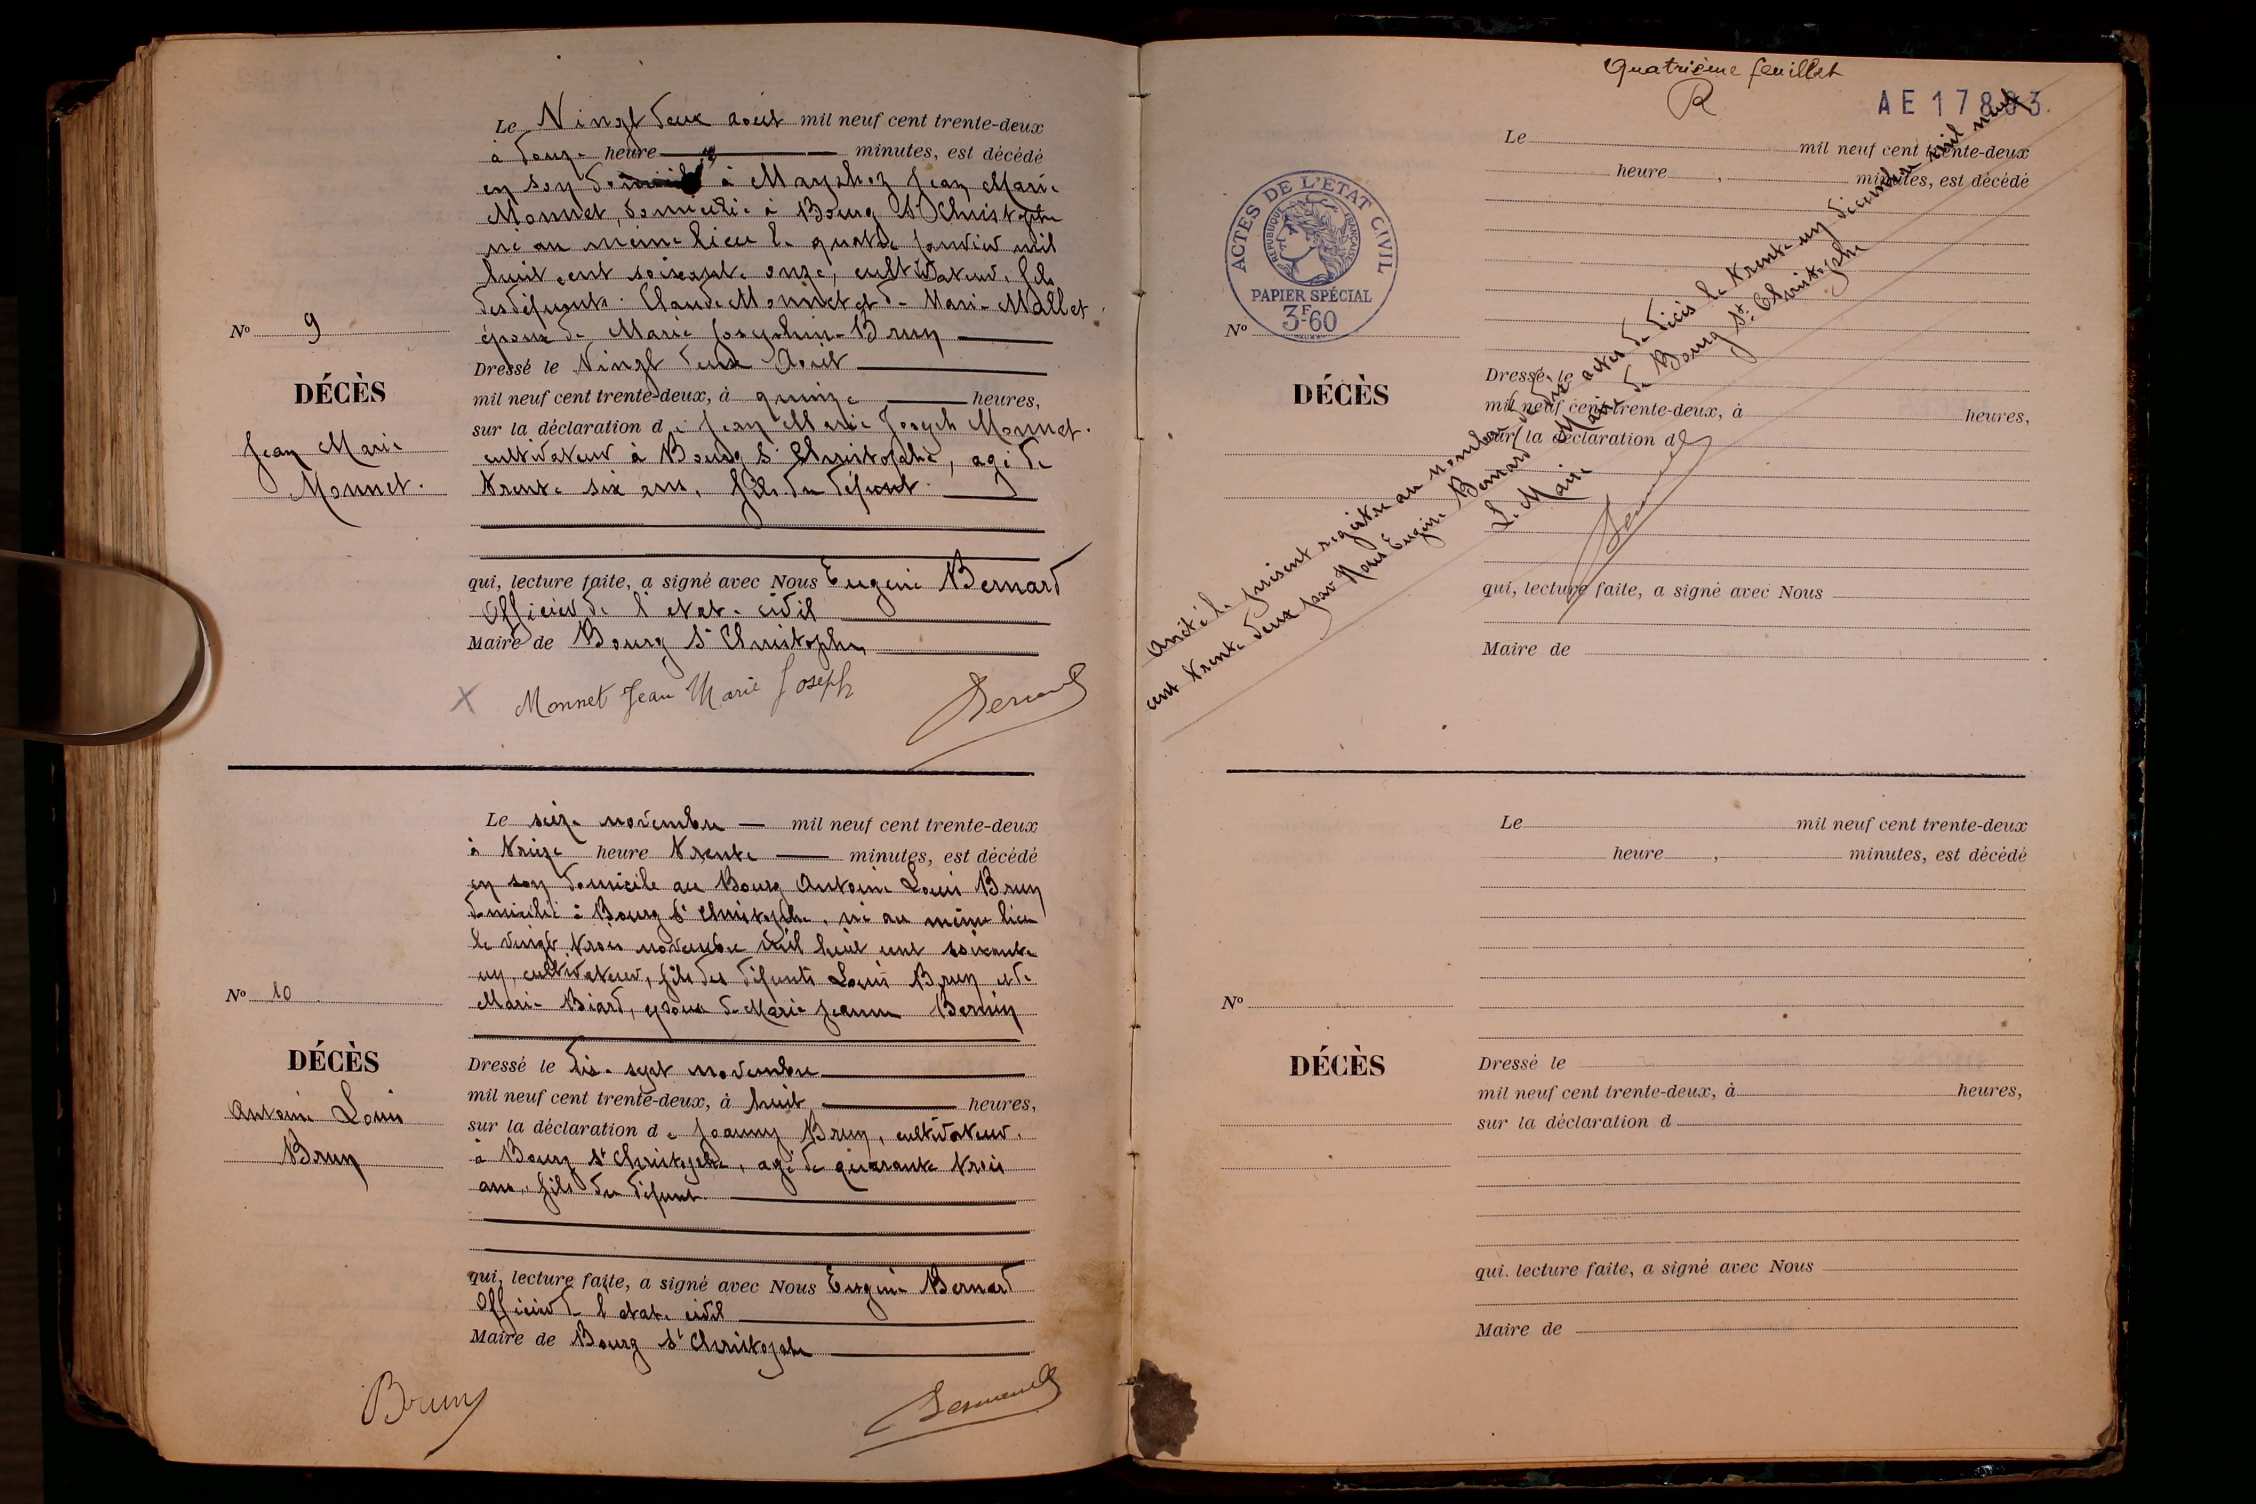 Le Vingt deux août mil neuf cent trente-deux
à douze heure minutes, est décédé
en son domicile à Marsholz Jean Marie
Monnet, domicilié à Bourg St Christophe
né au même lieu le quatre janvier mil
huit cent soixante onze, cultivateur, fils
des défunts Claude Monnet et de Marie Mallet
époux de Marie Josephine Brun
Nº 9
DÉCÈS
Jean Marie
Monnet.
Dressé le Vingt deux Août
mil neuf cent trente-deux, à quinze heures,
sur la déclaration de Jean Marie Joseph Monnet.
cultivateur à Bourg St Christophe, agé de
trente six ans, fils du défunt.
qui, lecture faite, a signé avec Nous Eugène Bernard
Officier de l'etat. civil
Maire de Bourg St Christophe
X Monnet Jean Marie Joseph Bernard
Le seize novembre mil neuf cent trente-deux
à treize heure trente minutes, est décédé
en son domicile au Bourg Antoine Louis Brun
domicilié à Bourg St Christophe, né au même lieu
le vingt trois novembre mil huit cent soixante
un, cultivateur, fils des défunts Louis Brun et de
Marie Biard, epoux de Marie Jeanne Bernin
Nº 10
DÉCÈS
Antoine Louis
Brun
Dressé le dix-sept novembre
mil neuf cent trente-deux, à huit heures,
sur la déclaration de Joanny Brun, cultivateur.
à Bourg St Christophe, agé de quarante trois
ans, fils du défunt.
qui, lecture faite, a signé avec Nous Eugène Bernard
Officier de l'etat. civil
Maire de Bourg St Christophe
Brun Bernard
Quatrième feuillet
R
AE 17883.
Le mil neuf cent trente-deux
heure , minutes, est décédé
ACTES DE L'ETAT CIVIL
REPUBLIQUE FRANÇAISE
PAPIER SPÉCIAL
3F-60
Nº
DÉCÈS
Dressé le
mil neuf cent trente-deux, à heures,
sur la déclaration d
qui, lecture faite, a signé avec Nous
Maire de
Arrêté le présent registre au nombre de dix actes de décès le trente un décembre mil neuf
cent trente deux par Nous Eugène Bernard Maire de Bourg St. Christophe
Le Maire
Bernard
Le mil neuf cent trente-deux
heure , minutes, est décédé
Nº
DÉCÈS
Dressé le
mil neuf cent trente-deux, à heures,
sur la déclaration d
qui. lecture faite, a signé avec Nous
Maire de